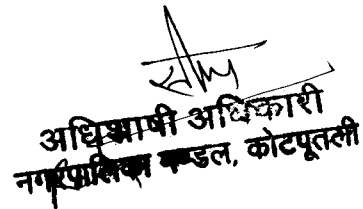 अधिशाषी अधिकारी
नगरपालिका मण्डल, कोटपूतली